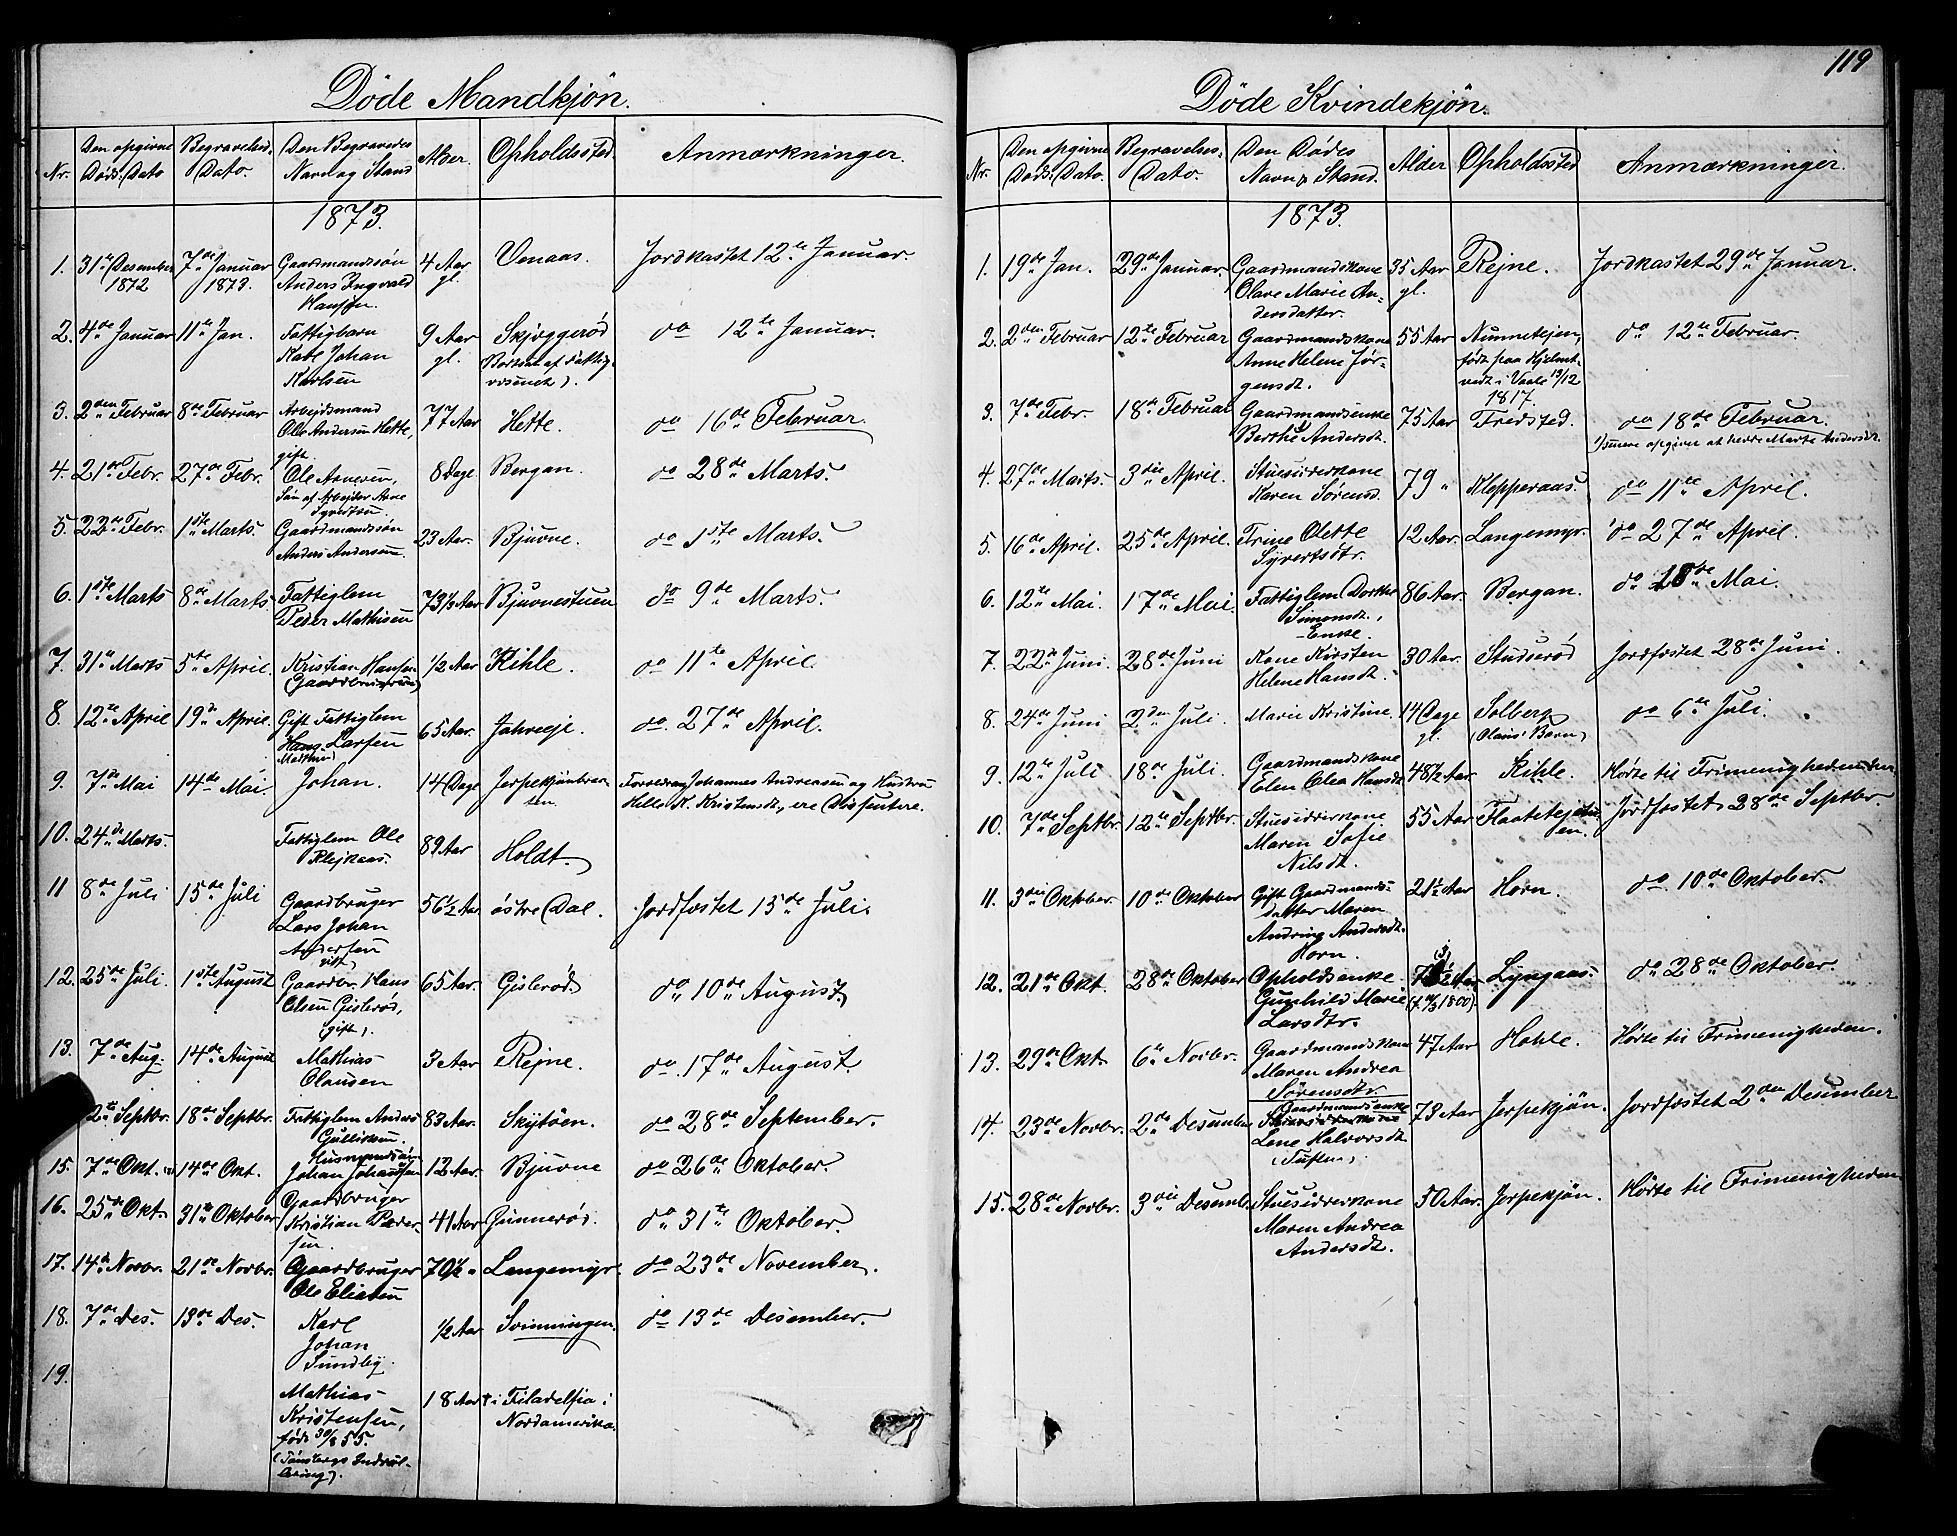 119
Døde Mandkjøn.
Nr. Den opgivne Døds-Dato Begravelses-Dato. Den Begravedes Navn og Stand Alder. Opholdssted. Anmærkninger.
1873.
1. 31te Desember 1872 7de Januar 1873. Gaardmandssøn Anders Ingvald Hansen. 4 Aar gl. Vemaas. Jordkastet 12te Januar.
2. 4de Januar 11te Jan. Fattigbarn Karl Johan Karlsen 9 Aar gl. Skjeggerød do 12te Januar.
3. 2den Februar 8de Februar Arbejdsmand Ole Andersen Hette, gift. 77 Aar Hette. do 16de Februar.
4. 21de Febr. 27de Febr. Ole Arnesen, Søn af Arbejder Arne Syvertsen. 8 Dage Bergan. do 28de Marts.
5. 22de Febr. 1ste Marts. Gaardmandssøn Anders Andersen. 23 Aar. Bjuvne. do 1ste Marts.
6. 1ste Marts 8de Marts Fattiglem Peder Mathisen 73½ Aar Bjuvnestuen do 9de Marts.
7. 31te Marts 5te April. Kristian Hansen 1/2 Aar Kihle. do 11te April.
8. 12te April 19de April. Gift Fattiglem Hans Larsen 65 Aar. Jahreeje. do. 27de April.
9. 7de Mai 14de Mai. Johan. 14 Dage Jerpekjønbraaten. Forældrene Johannes Andreasen og Hustru Helle K. Kristensdt, ere Dissentere.
10. 24de Marts. Fattiglem Ole Klejvaas. 89 Aar Holdt.
11 8de Juli 15de Juli Gaardbruger Lars Johan Andersen gift 56½ Aar østre Dal. Jordfæstet 15de Juli.
12. 25de Juli. 1ste August Gaardbr. Hans Olsen Gislerød, (gift). 65 Aar. Gislerød do 10de August
13. 7de Aug. 14de August Mathias Olausen 3 Aar Rejne. do. 17de August.
2te Septbr. 18de Septbr. Fattiglem Anders Gulliksen. 83 Aar. Skytøen. do 28de September.
15. 7de Okt. 14de Okt. Husmandssøn Johan Johansen 12 Aar. Bjuvne do 26de Oktober.
16. 25de Okt. 31te Oktober Gaardbruger Kristian Pedersen. 41 Aar Gunnerød. do 31te Oktober.
17. 14de Novbr. 21de Novbr. Gaardbruger Ole Eliasen 70½ " Langemyr. do 23de November.
18. 7de Des. 13de Des. Karl Johan Sundby. 1/2 Aar Svinningen. do 13de Desember.
19. Mathias Kristensen, født 30/8 55. (Tønsbergs Indrulering). 18 Aar † i Filadelfia i Nordamerika.
Døde Kvindekjøn.
Nr. Den opgivne Døds-Dato. Begravelses-Dato. Den Dødes Navn & Stand. Alder Opholdssted Anmærkninger.
1873.
1. 19de Jan. 29de Januar. Gaardmandskone Olave Marie Andersdatter. 35 Aar gl. Rejne. Jordkastet 29de Januar.
2. 2den Februar 12te Februar Gaardmandskone Anne Helene Jørgensdt. 55 Aar Nunnetejen, født paa Hjelmtvedt i Vaale 19/12 1817. do 12te Februar.
3. 7de Febr. 18de Februar Gaardmandsenke Berthe Andersdt. 75 Aar Fredsted. do 18de Februar.
1) senere opgivet at hedde Marte Andersdt.
4. 27de Marts. 3die April. Stuesidderkone Karen Sørensd. 79 " Klopperaas. do 11te April.
5. 16de April. 25de April. Trine Olette Syvertsdtr. 12 Aar. Langemyr. do 27de April.
6. 12te Mai. 17de Mai. Fattiglem Dorthe Simonsdt., Enke. 86 Aar. Bergan. do 18de Mai.
7. 22de Juni. 28de Juni Kone Kirsten Helene Hansdt. 30 Aar. Studserød Jordfæstet 28de Juni.
8. 24de Juni 2den Juli. Marie Kristine. 14 Dage gl. Solberg (Olaus' Barn) do 6te Juli.
9. 12te Juli 18de Juli. Gaardmandskone Elen Olea Hansdt 48½ Aar. Kihle. Hørte til Frimenigheden
10. 7de Septbr. 12te Septbr. Stuesidderkone Maren Sofie Nilsdt. 55 Aar Jordfæstet 28de Septbr.
11. 3die Oktober. 10de Oktober Gift Gaardmandsdatter Maren Andrine Andersdt. Horn. 21½ Aar Horn. do. 10de Oktober.
12. 21de Okt. 28de Oktober Opholdsenke Gunhild Marie Larsdtr. Lyngaas do 28de Oktober.
13. 29de Okt. 6te Novbr. Gaardmandskone Maren Andrea Sørensdtr. 47 Aar Hohle. Hørte til Frimenigheden.
14. 23de Novbr. 2den Desember Gaardmandsenke Lene Halvorsdt (Tuften). 73 Aar Jerpekjøn. Jordfæstet 2den Desember
15. 28de Novbr. 3die Desemb. Stuesidderkone Maren Andrea Andersdt. 50 Aar. Jerpekjøn. Hørte til Frimenigheden